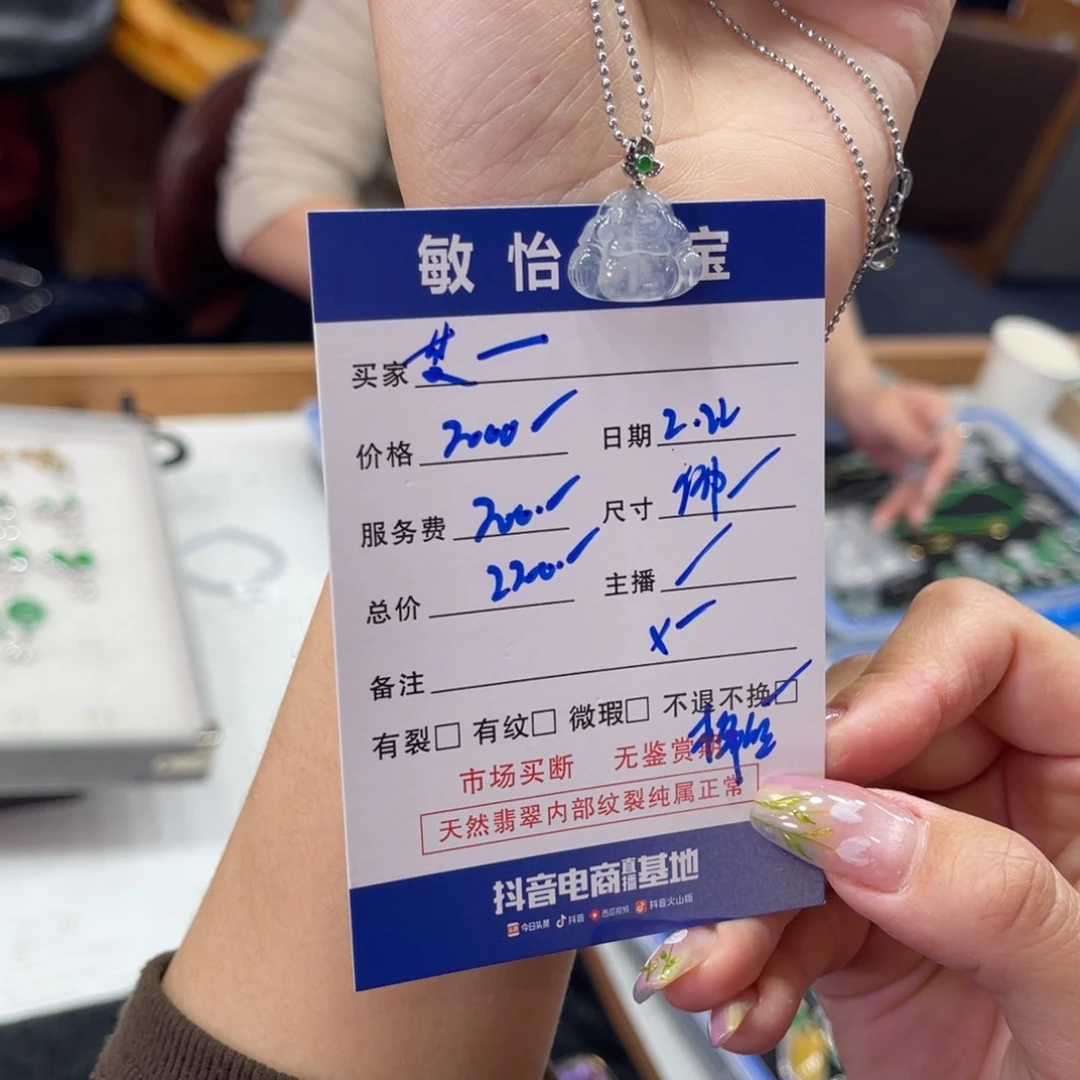 敏 怡 宝
买家
价格 2000 日期 2.22
服务费 200. 尺寸 佛
总价 2200. 主播
备注
有裂□ 有纹□ 微瑕□ 不退不换□
市场买断 无鉴赏期
天然翡翠内部纹裂纯属正常
抖音电商直播基地
今日头条 抖音 西瓜视频 抖音火山版